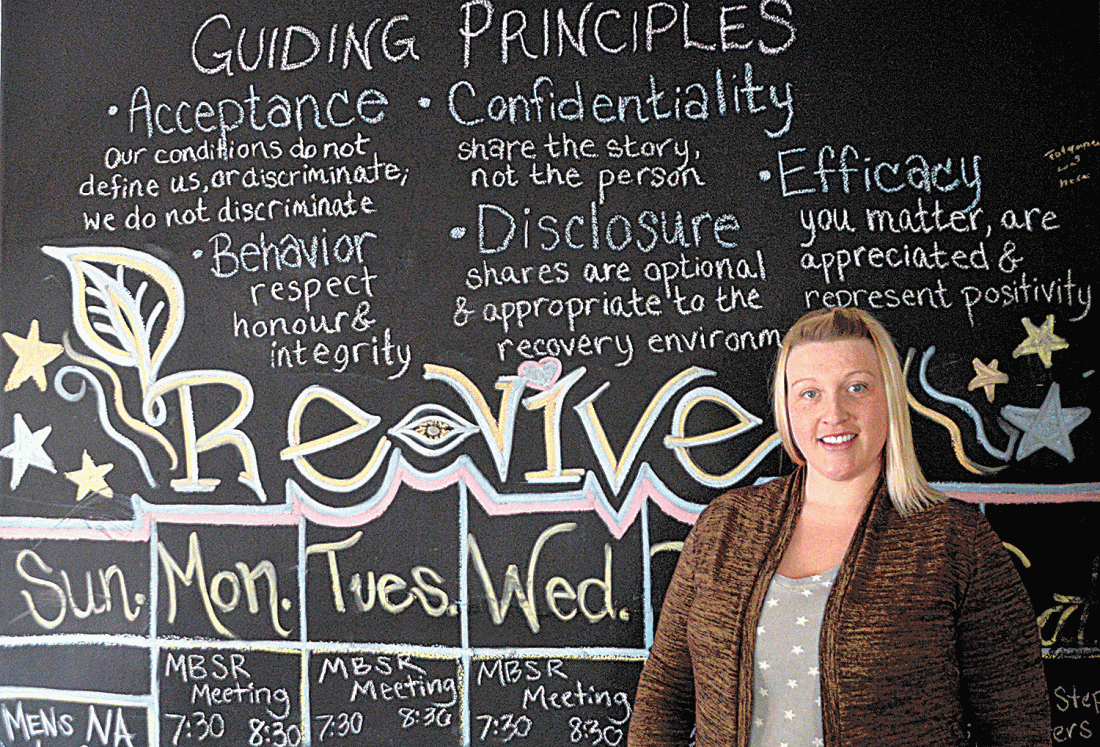 GUIDING PRINCIPLES
• Acceptance
Our conditions do not
define us, or discriminate;
we do not discriminate
• Behavior
respect
honour &
integrity
• Confidentiality
share the story,
not the person
• Disclosure
shares are optional
& appropriate to the
recovery environm
• Efficacy
you matter, are
appreciated &
represent positivity
here
Revive
Sun. Mon. Tues. Wed.
MBSR
Meeting
7:30 8:30
MBSR
Meeting
7:30 8:30
MBSR
Meeting
7:30 8:30
MENS NA
Step
ers